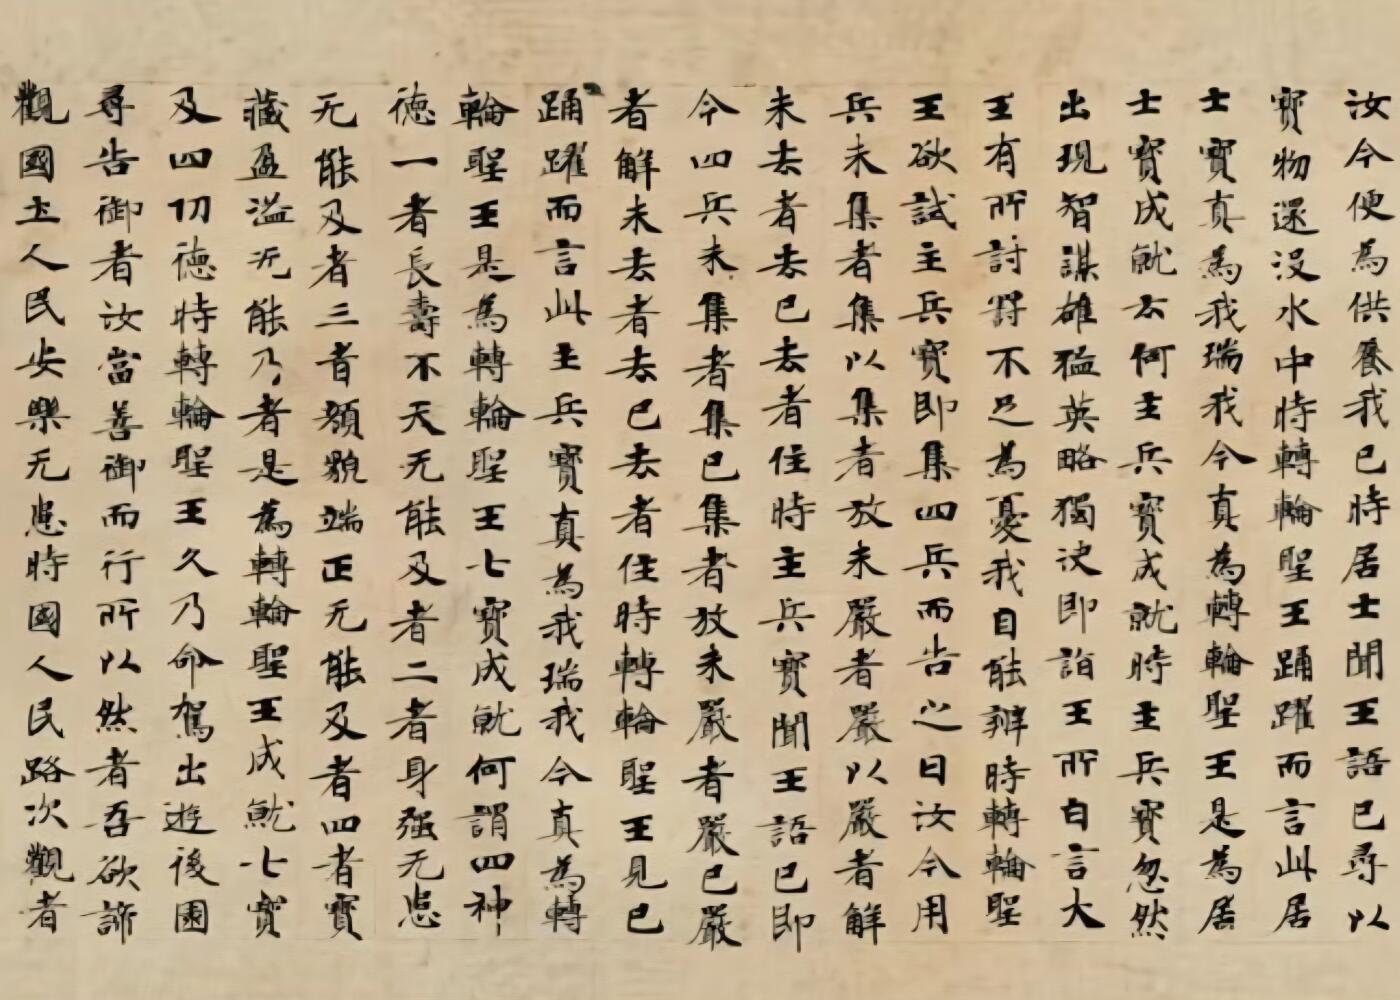 汝今便為供養我已時居士聞王語已尋以
寶物還没水中時轉輪聖王踊躍而言此居
士寶真為我瑞我今真為轉輪聖王是為居
士寶成就云何主兵寶成就時主兵寶忽然
出現智謀雄猛英略獨决即詣王所白言大
王有所討罸不足為憂我自能辦時轉輪聖
王欲試主兵寶即集四兵而告之曰汝今用
兵未集者集以集者放未嚴者嚴以嚴者解
未去者去已去者住時主兵寶聞王語已即
令四兵未集者集已集者放未嚴者嚴已嚴
者解未去者去已去者住時轉輪聖王見已
踊躍而言此主兵寶真為我瑞我今真為轉
輪聖王是為轉輪聖王七寶成就何謂四神
德一者長壽不夭无能及者二者身强无患
无能及者三者顔貌端正无能及者四者寶
藏盈溢无能及者是為轉輪聖王成就七寶
及四功德時轉輪聖王久乃命駕出遊後園
尋告御者汝當善御而行所以然者吾欲諦
觀國土人民安樂无患時國人民路次觀者